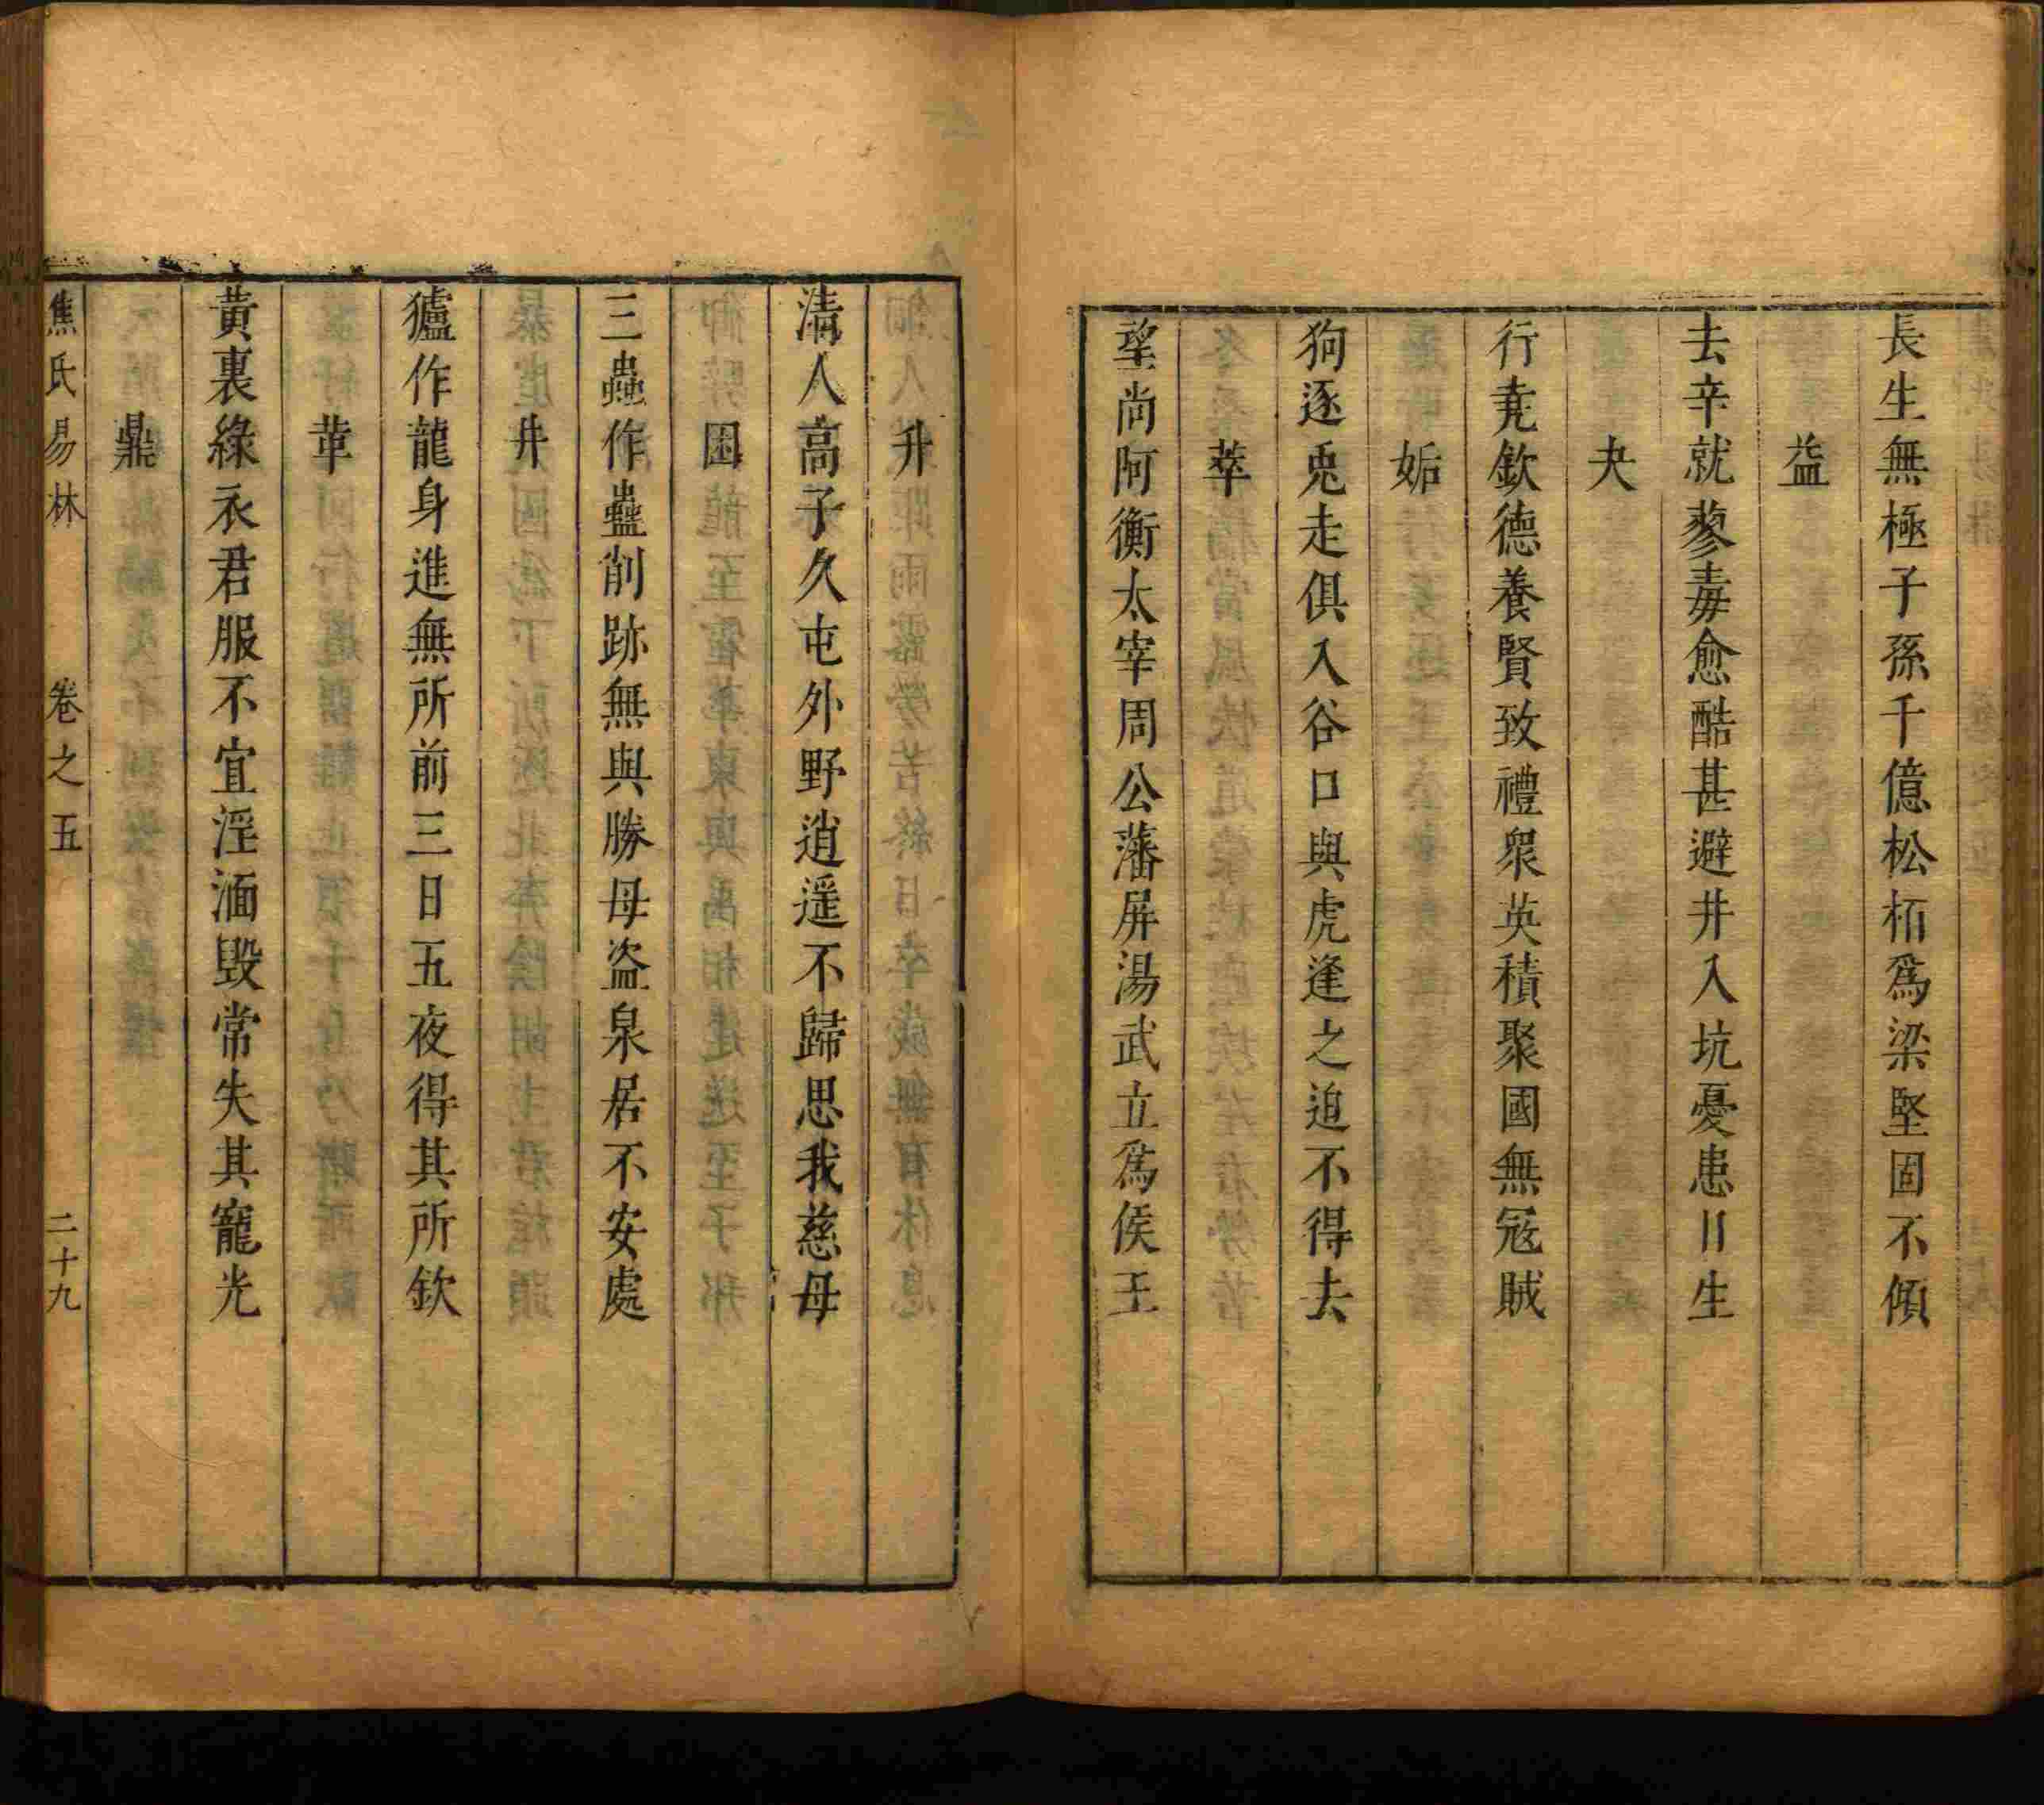 長生無極子孫千億松栢爲梁堅固不傾
益
去辛就蓼毒愈酷甚避井入坑憂患日生
夬
行堯欽德養賢致禮眾英積聚國無冦賊
姤
狗逐兎走俱入谷口與虎逢之迫不得去
萃
望尚阿衡太宰周公藩屏湯武立爲侯王
升
清人高子久屯外野逍遥不歸思我慈母
困
三蟲作蠱削跡無與勝母盜泉居不安處
井
獹作龍身進無所前三日五夜得其所欽
革
黃裏綠衣君服不宜淫湎毀常失其寵光
鼎
焦氏易林 卷之五 二十九